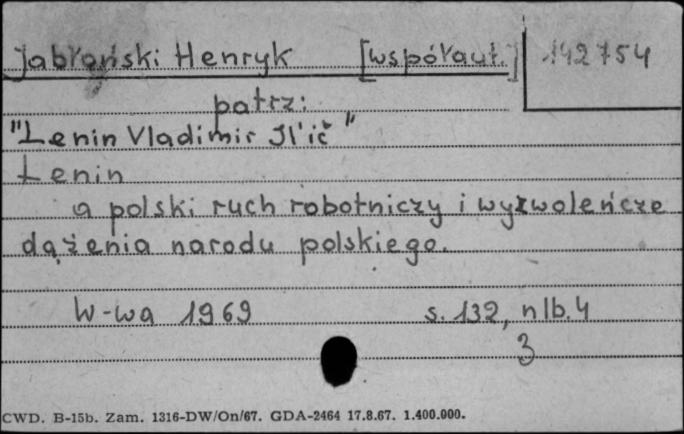 Jabłoński Henryk [współaut.] 142754
patrz:
"Lenin Vladimir Il'ič"
Lenin
a polski ruch robotniczy i wyzwoleńcze
dążenia narodu polskiego.
W-wa 1969 s. 132, nlb. 4
3
CWD. B-15b. Zam. 1316-DW/On/67. GDA-2464 17.8.67. 1.400.000.